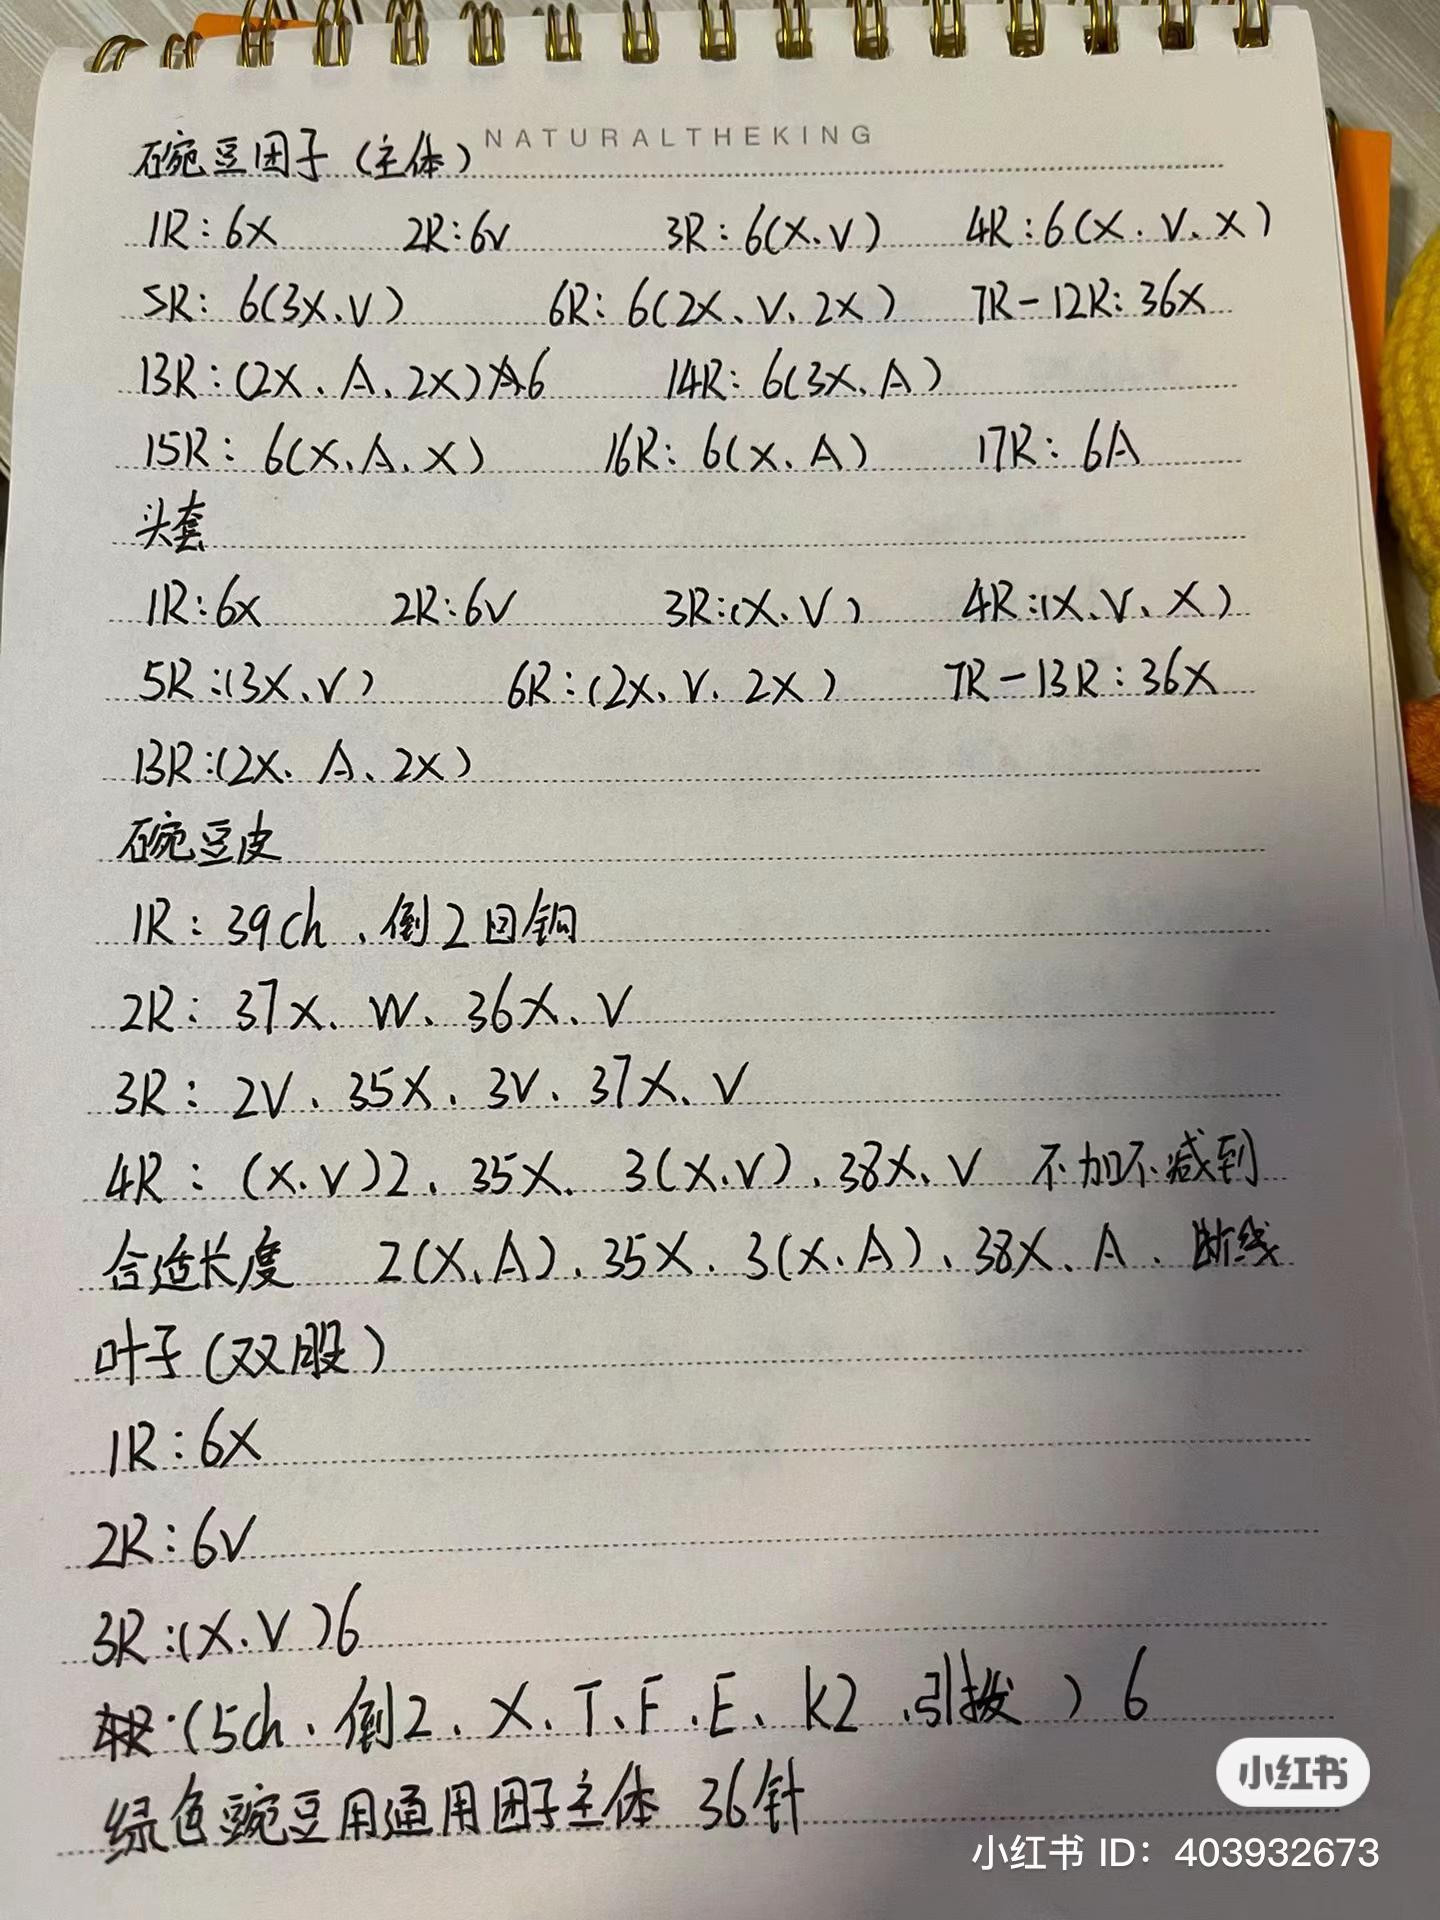 NATURALTHEKING
碗豆团子（主体）
1R：6X 2R：6V 3R：6(X、V) 4R：6(X、V、X)
5R：6(3X、V) 6R：6(2X、V、2X) 7R-12R：36X
13R：(2X、A、2X)6 14R：6(3X、A)
15R：6(X、A、X) 16R：6(X、A) 17R：6A
头套
1R：6X 2R：6V 3R：(X、V) 4R：(X、V、X)
5R：(3X、V) 6R：(2X、V、2X) 7R-13R：36X
13R：(2X、A、2X)
碗豆皮
1R：39ch、倒2回钩
2R：37X、W、36X、V
3R：2V、35X、3V、37X、V
4R：(X、V)2、35X、3(X、V)、38X、V 不加不减到
合适长度 2(X、A)、35X、3(X、A)、38X、A、断线
叶子（双股）
1R：6X
2R：6V
3R：(X、V)6
(5ch、倒2、X、T、F、E、K2、引拨)6
绿色豌豆用通用团子主体 36针
小红书
小红书 ID：403932673